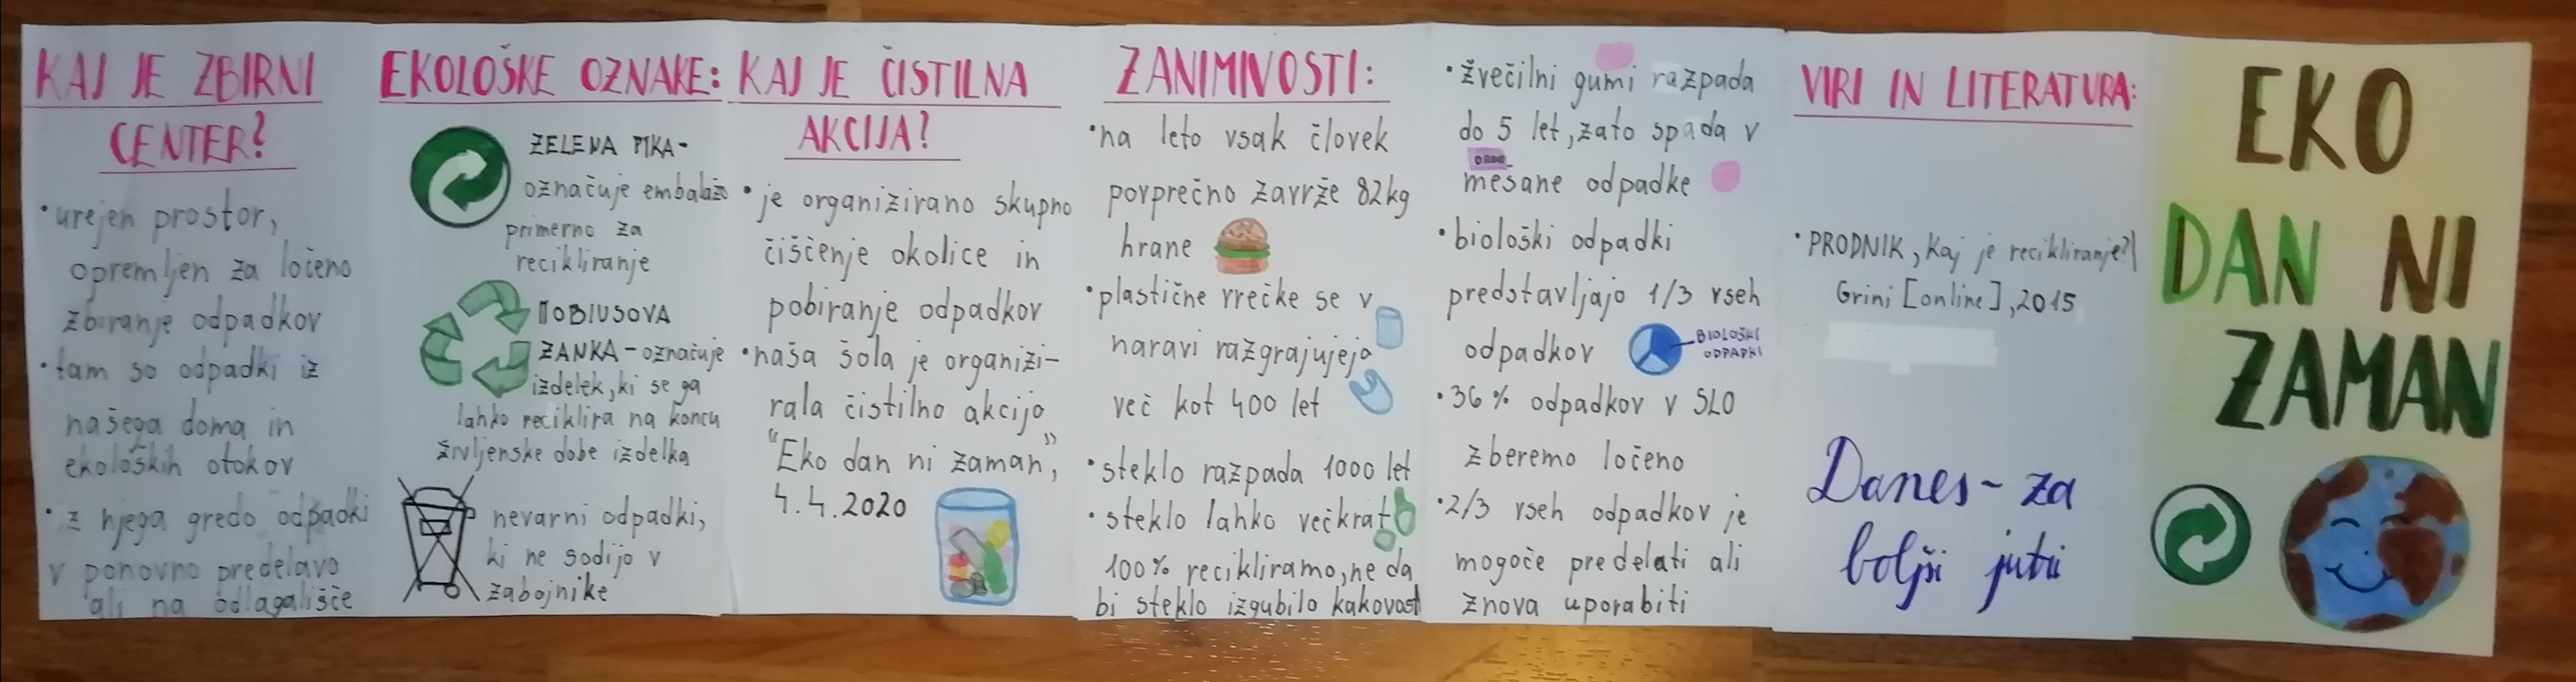 KAJ JE ZBIRNI
CENTER?
• urejen prostor,
opremljen za ločeno
zbiranje odpadkov
• tam so odpadki iz
našega doma in
ekoloških otokov
• z njega gredo odpadki
v ponovno predelavo
ali na odlagališče
EKOLOŠKE OZNAKE:
ZELENA PIKA-
označuje embalažo
primerno za
recikliranje
MOBIUSOVA
ZANKA - označuje
izdelek, ki se ga
lahko reciklira na koncu
življenske dobe izdelka
nevarni odpadki,
ki ne sodijo v
zabojnike
KAJ JE ČISTILNA
AKCIJA?
• je organizirano skupno
čiščenje okolice in
pobiranje odpadkov
• naša šola je organizi-
rala čistilno akcijo
"Eko dan ni zaman",
4.4.2020
ZANIMIVOSTI:
• na leto vsak človek
povprečno zavrže 82kg
hrane
• plastične vrečke se v
naravi razgrajujejo
več kot 400 let
• steklo razpada 1000 let
• steklo lahko večkrat
100% recikliramo, ne da
bi steklo izgubilo kakovost
• žvečilni gumi razpada
do 5 let, zato spada v
mešane odpadke
• biološki odpadki
predstavljajo 1/3 vseh
odpadkov
BIOLOŠKI
ODPADKI
• 36% odpadkov v SLO
zberemo ločeno
• 2/3 vseh odpadkov je
mogoče predelati ali
znova uporabiti
VIRI IN LITERATURA:
• PRODNIK, Kaj je recikliranje?\
Grini [online], 2015
Danes - za
boljši jutri
EKO
DAN NI
ZAMAN